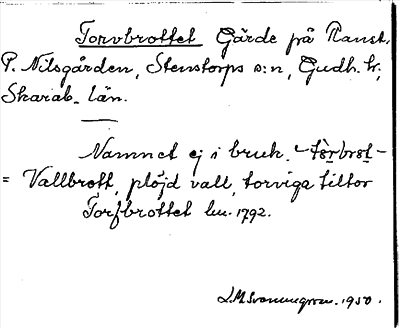 Torvbrottet Gärde på Ranst.
P. Nilsgården, Stenstorps s:n, Gudh. h.,
Skarab. län.
Namnet ej i bruk.
= Vallbrott, plöjd vall, torviga tiltor
Torfbrottet lm. 1792.
1950.